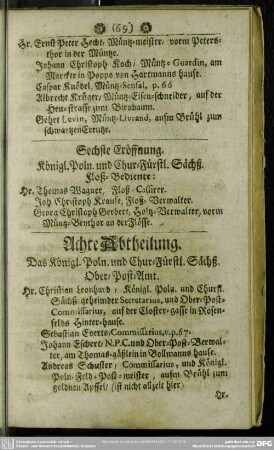 (69)
Hr. Ernst Peter Hecht, Müntz-meister, vorm Peters-
thor in der Müntze.
Johann Christoph Koch, Müntz-Guardin, am
Marckte in Popps von Hartmanns hause.
Caspar Knödel, Müntz-Sensal, p. 66
Albrecht Krüger, Müntz-Eisen-schneider, auf der
Heu-strasse zum Birnbaum.
Gohrt Levin, Müntz-Livrand, aufm Brühl zum
schwartzen Creutze.
Sechste Eröffnung.
Königl. Poln. und Chur-Fürstl. Sächß.
Floß-Bediente:
Hr. Thomas Wagner, Floß-Cassirer.
Joh Christoph Krause, Floß-Verwalter.
Georg Christoph Gerbert, Holtz-Verwalter, vorm
Müntz-thor an der Flösse.
Achte Abtheilung.
Das Königl. Poln. und Chur-Fürstl. Sächß.
Ober-Post-Amt.
Hr. Christian Leonhard, Königl. Poln. und Churfl.
Sächß geheimder Secretarius, und Ober-Post-
Commissarius, auf der Closter-gasse in Rosen-
felds Hinter-hause.
Sebastian Evertz Commissarius, v. p. 67.
Johann Eschert N.P.C. und Ober-Post-Verwal-
ter, am Thomas-gäßlein in Vollmanns hause.
Andreas Schuster, Commissarius, und Königl.
Poln. Feld-Post-meister, aufm Brühl zum
goldnen Apffel, (ist nicht allzeit hier)
Hr.